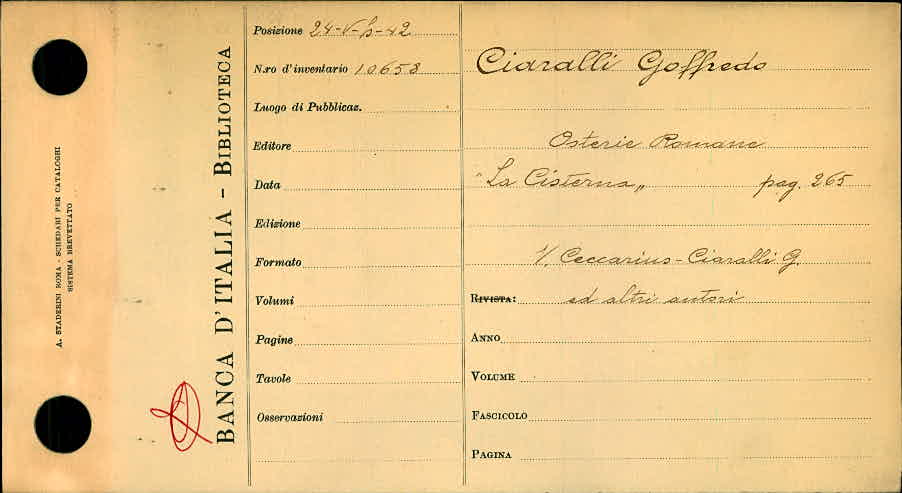 A. STADERINI ROMA - SCHEDARI PER CATALOGHI
SISTEMA BREVETTATO
BANCA D'ITALIA - BIBLIOTECA
Posizione 24-V-h-42
N.ro d'inventario 10658
Luogo di Pubblicaz.
Editore
Data
Edizione
Formato
Volumi
Pagine
Tavole
Osservazioni
Ciaralli Goffredo
Osterie Romane
"La Cisterna„ pag. 265
1/, Ceccarius - Ciaralli G.
RIVISTA: ed altri autori
ANNO
VOLUME
FASCICOLO
PAGINA